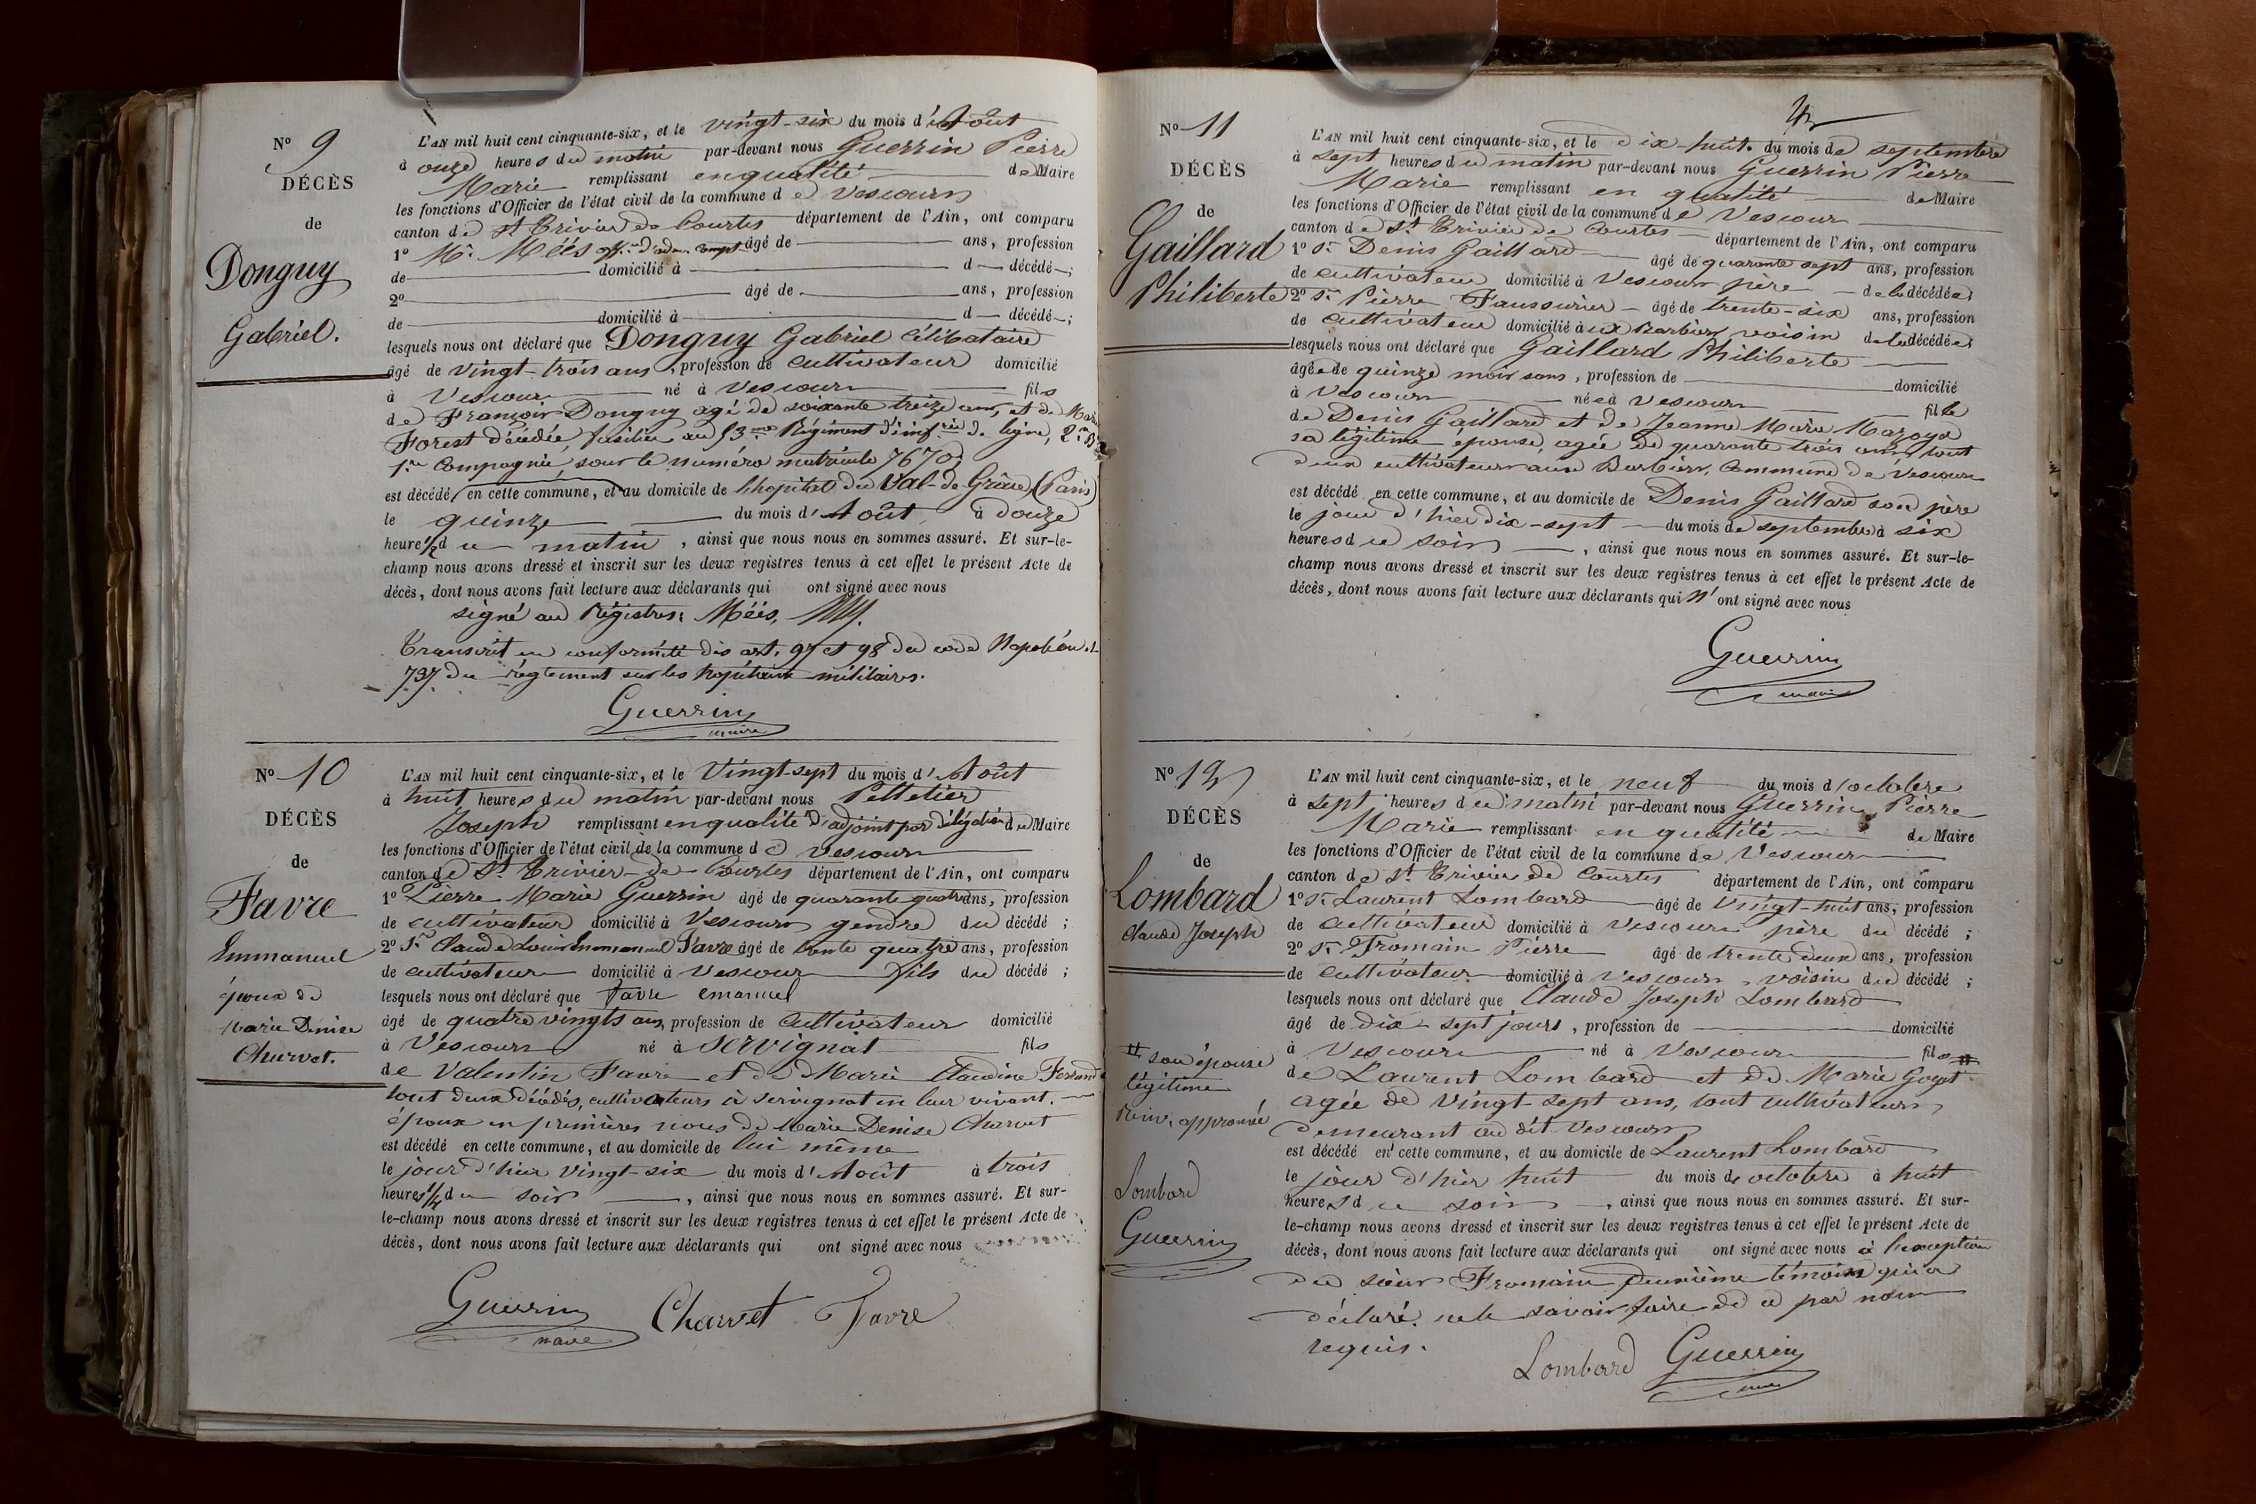 N° 9
DÉCÈS
de
Donguy
Gabriel.
L'AN mil huit cent cinquante-six, et le vingt-six du mois d'Août
à onze heures du matin par-devant nous Guerrin Pierre
Marie remplissant en qualité de Maire
les fonctions d'Officier de l'état civil de la commune de Vescours
canton de St Trivier de Courtes département de l'Ain, ont comparu
1° Mr. Méés offr. d'adm. compt. âgé de ans, profession
de domicilié à d décédé ;
2° âgé de ans, profession
de domicilié à d décédé ;
lesquels nous ont déclaré que Donguy Gabriel Célibataire
âgé de vingt-trois ans, profession de cultivateur domicilié
à Vescours né à Vescours fils
de François Donguy agé de soixante treize ans, et de
Forest décédée, fusilier au 53me Régiment d'infrie de ligne, 2e
1re Compagnie, sous le numéro matricule 7670
est décédé en cette commune, et au domicile de l'hopital du Val-de-Grâce, (Paris)
le quinze du mois d'Août, à douze
heure 1/2 du matin, ainsi que nous nous en sommes assuré. Et sur-le-
champ nous avons dressé et inscrit sur les deux registres tenus à cet effet le présent Acte de
décès, dont nous avons fait lecture aux déclarants qui ont signé avec nous
signé au Régistre: Méés,
Transcrit en conformité des art. 97 et 98 du code Napoléon et
737 du règlement sur les hopitaux militaires.
Guerrin
maire
N° 10
DÉCÈS
de
Favre
Emmanuel
époux de
Marie Denise
Charvet.
L'AN mil huit cent cinquante-six, et le Vingt-sept du mois d'Août
à huit heures du matin par-devant nous Pelletier
Joseph remplissant en qualité d'adjoint par délégation du Maire
les fonctions d'Officier de l'état civil de la commune de Vescours
canton de St Trivier-de-Courtes département de l'Ain, ont comparu
1° Pierre Marie Guerrin âgé de quarante quatre ans, profession
de cultivateur domicilié à Vescours gendre du décédé ;
2° Sr Claude Louis Emmanuel Favre âgé de trente quatre ans, profession
de cultivateur domicilié à Vescours fils du décédé ;
lesquels nous ont déclaré que Favre emanuel
âgé de quatre vingts ans, profession de Cultivateur domicilié
à Vescours né à Servignat fils
de Valentin Favre et de Marie Claudine
tout deux décédés, cultivateurs à Servignat en leur vivant.
époux en premières noces de Marie Denise Charvet
est décédé en cette commune, et au domicile de lui même
le jour d'hier vingt-six du mois d'Août à trois
heures 1/4 du soir, ainsi que nous nous en sommes assuré. Et sur-
le-champ nous avons dressé et inscrit sur les deux registres tenus à cet effet le présent Acte de
décès, dont nous avons fait lecture aux déclarants qui ont signé avec nous
Guerrin
maire
Charvet Favre
N° 11
DÉCÈS
de
Gaillard
Philiberte
L'AN mil huit cent cinquante-six, et le dix-huit du mois de septembre
à sept heures du matin par-devant nous Guerrin Pierre
Marie remplissant en qualité de Maire
les fonctions d'Officier de l'état civil de la commune de Vescours
canton de St Trivier de Courtes département de l'Ain, ont comparu
1° Sr Denis Gaillard âgé de quarante sept ans, profession
de cultivateur domicilié à Vescours père de la décédée
2° Sr Pierre âgé de trente-six ans, profession
de cultivateur domicilié aux Barbiers voisin de la décédée
lesquels nous ont déclaré que Gaillard Philiberte
âgée de quinze mois sans, profession de domicilié
à Vescours née à Vescours fille
de Denis Gaillard et de Jeanne Marie
sa légitime épouse, agée de quarante trois ans, tout
deux cultivateurs aux Barbiers, Commune de Vescours
est décédé en cette commune, et au domicile de Denis Gaillard son père
le jour d'hier dix-sept du mois de septembre à six
heures du soir, ainsi que nous nous en sommes assuré. Et sur-le-
champ nous avons dressé et inscrit sur les deux registres tenus à cet effet le présent Acte de
décès, dont nous avons fait lecture aux déclarants qui n'ont signé avec nous
Guerrin
maire
N° 12
DÉCÈS
de
Lombard
Claude Joseph
L'AN mil huit cent cinquante-six, et le neuf du mois d'octobre
à sept heures du matin par-devant nous Guerrin Pierre
Marie remplissant en qualité de Maire
les fonctions d'Officier de l'état civil de la commune de Vescours
canton de St Trivier de Courtes département de l'Ain, ont comparu
1° Sr Laurent Lombard âgé de vingt-huit ans, profession
de cultivateur domicilié à Vescours père du décédé ;
2° Sr Fromain Pierre âgé de trente deux ans, profession
de cultivateur domicilié à Vescours voisin du décédé ;
lesquels nous ont déclaré que Claude Joseph Lombard
âgé de dix-sept jours, profession de domicilié
à Vescours né à Vescours fils
de Laurent Lombard et de Marie Goyat
agée de vingt-sept ans, tout cultivateurs
demeurant au dit Vescours
est décédé en cette commune, et au domicile de Laurent Lombard
le jour d'hier huit du mois de octobre à huit
heures du soir, ainsi que nous nous en sommes assuré. Et sur-
le-champ nous avons dressé et inscrit sur les deux registres tenus à cet effet le présent Acte de
décès, dont nous avons fait lecture aux déclarants qui ont signé avec nous à l'exception
du sieur Fromain deuxième témoin qui a
déclaré ne le savoir faire de ce par nous
requis.
Lombard Guerrin
son épouse
légitime
Renv. approuvé
Lombard
Guerrin